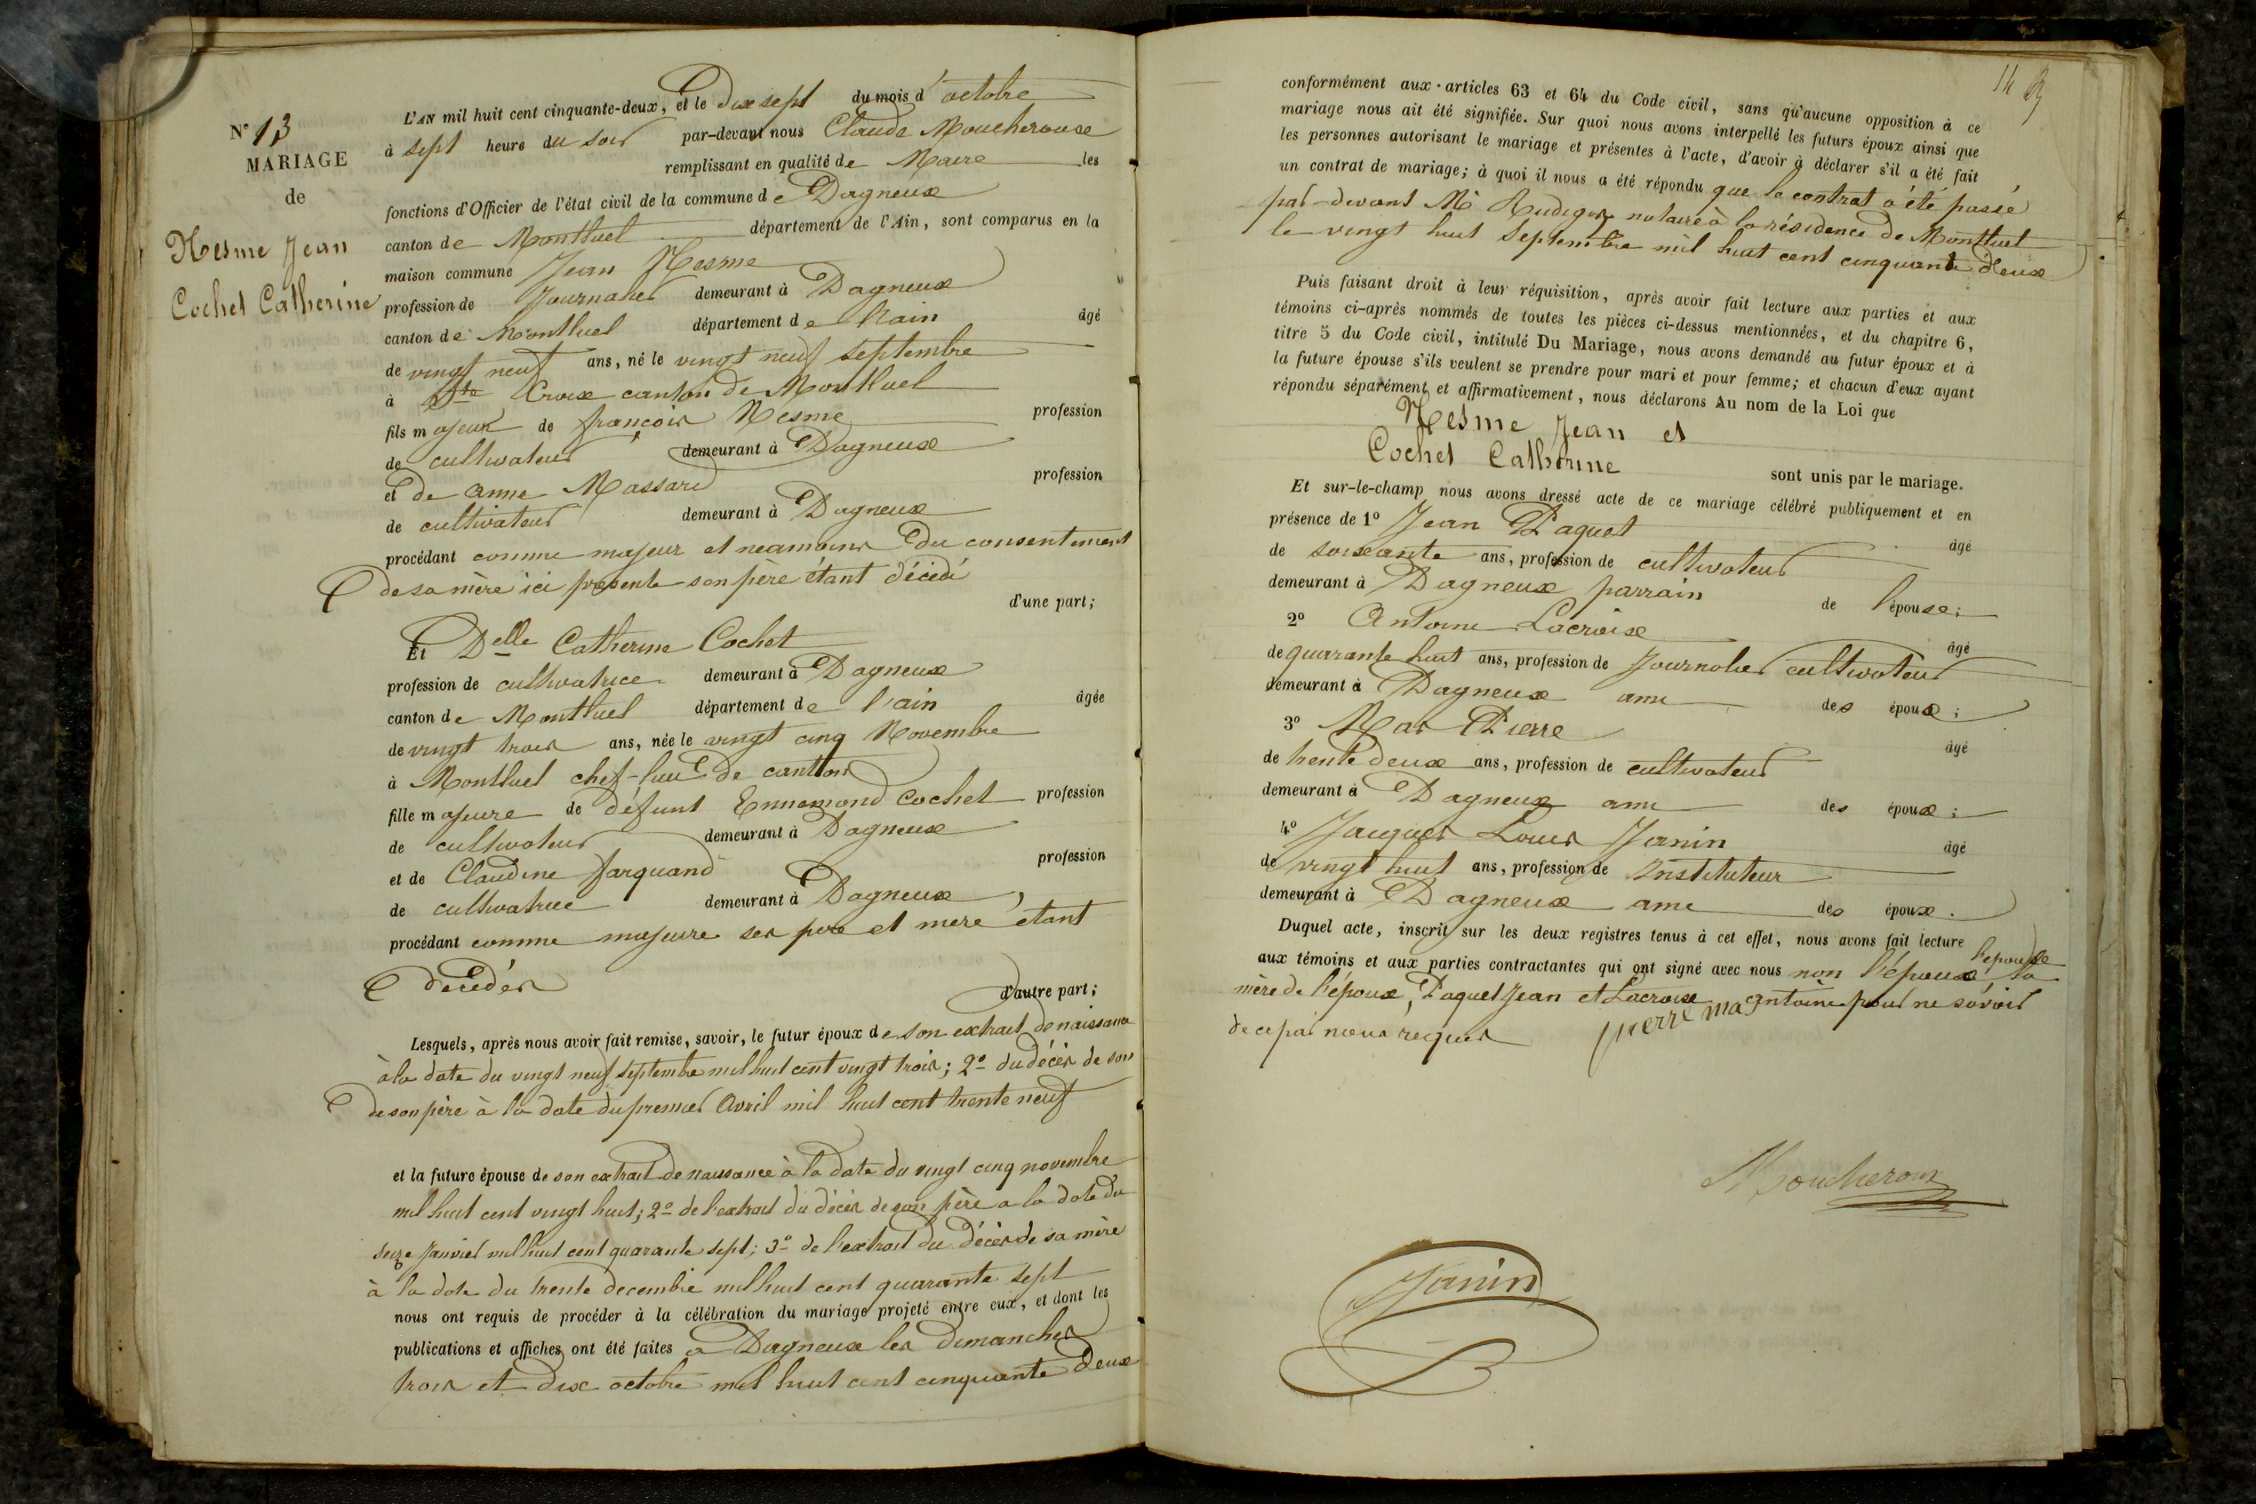 N° 13
MARIAGE
de
Nesme Jean
Cochet Catherine
L'AN mil huit cent cinquante-deux, et le dix sept du mois d'octobre
à sept heure du soir par-devant nous Claude Moucheroux
remplissant en qualité de Maire les
fonctions d'Officier de l'état civil de la commune de Dagneux
canton de Montluel département de l'Ain, sont comparus en la
maison commune Jean Nesme
profession de Journalier demeurant à Dagneux
canton de Montluel département de l'ain âgé
de vingt neuf ans, né le vingt neuf septembre
à Ste Croix canton de Montluel
fils majeur de françois Nesme profession
de cultivateur demeurant à Dagneux
et de anne Massard profession
de cultivateur demeurant à Dagneux
procédant comme majeur et neamoins du consentement
de sa mère ici presente son père étant décédé
d'une part;
Et Delle Catherine Cochet
profession de cultivatrice demeurant à Dagneux
canton de Montluel département de l'ain âgée
de vingt trois ans, née le vingt cinq Novembre
à Montluel chef-lieu de canton
fille majeure de défunt Ennemond Cochet profession
de cultivateur demeurant à Dagneux
et de Claudine farquand profession
de cultivatrice demeurant à Dagneux,
procédant comme majeure ses pere et mere étant
décédés
d'autre part;
Lesquels, après nous avoir fait remise, savoir, le futur époux de son extrait de naissance
à la date du vingt neuf septembre mil huit cent vingt trois; 2° du décès de son
de son père à la date du premier Avril mil huit cent trente neuf
et la future épouse de son extrait de naissance à la date du vingt cinq novembre
mil huit cent vingt huit; 2° de l'extrait du décès de son père a la date du
seize Janvier mil huit cent quarante sept; 3° de l'extrait du décès de sa mère
à la date du trente decembre mil huit cent quarante sept
nous ont requis de procéder à la célébration du mariage projeté entre eux, et dont les
publications et affiches ont été faites a Dagneux les dimanches
trois et dix octobre mil huit cent cinquante deux
14
conformément aux articles 63 et 64 du Code civil, sans qu'aucune opposition à ce
mariage nous ait été signifiée. Sur quoi nous avons interpellé les futurs époux ainsi que
les personnes autorisant le mariage et présentes à l'acte, d'avoir à déclarer s'il a été fait
un contrat de mariage; à quoi il nous a été répondu que le contrat a été passé
par-devant Me Rudigoz notaire à la résidence de Montluel
le vingt huit Septembre mil huit cent cinquante deux
Puis faisant droit à leur réquisition, après avoir fait lecture aux parties et aux
témoins ci-après nommés de toutes les pièces ci-dessus mentionnées, et du chapitre 6,
titre 5 du Code civil, intitulé Du Mariage, nous avons demandé au futur époux et à
la future épouse s'ils veulent se prendre pour mari et pour femme; et chacun d'eux ayant
répondu séparément et affirmativement, nous déclarons Au nom de la Loi que
Nesme Jean et
Cochet Catherine
sont unis par le mariage.
Et sur-le-champ nous avons dressé acte de ce mariage célébré publiquement et en
présence de 1° Jean Paquet âgé
de soixante ans, profession de cultivateur
demeurant à Dagneux parrain de l'épouse;
2° Antoine Lacroix âgé
de quarante huit ans, profession de Journalier cultivateur
demeurant à Dagneux ami des époux;
3° Mas Pierre âgé
de trente deux ans, profession de cultivateur
demeurant à Dagneux ami des époux;
4° Jacques Louis Janin âgé
de vingt huit ans, profession de instituteur
demeurant à Dagneux ami des époux.
Duquel acte, inscrit sur les deux registres tenus à cet effet, nous avons fait lecture
aux témoins et aux parties contractantes qui ont signé avec nous non l'époux l'epouse la
mère de l'époux, Paquet Jean et Lacroix antoine pour ne savoir
de ce par nous requis
pierre mas
Moucheroux
Janin